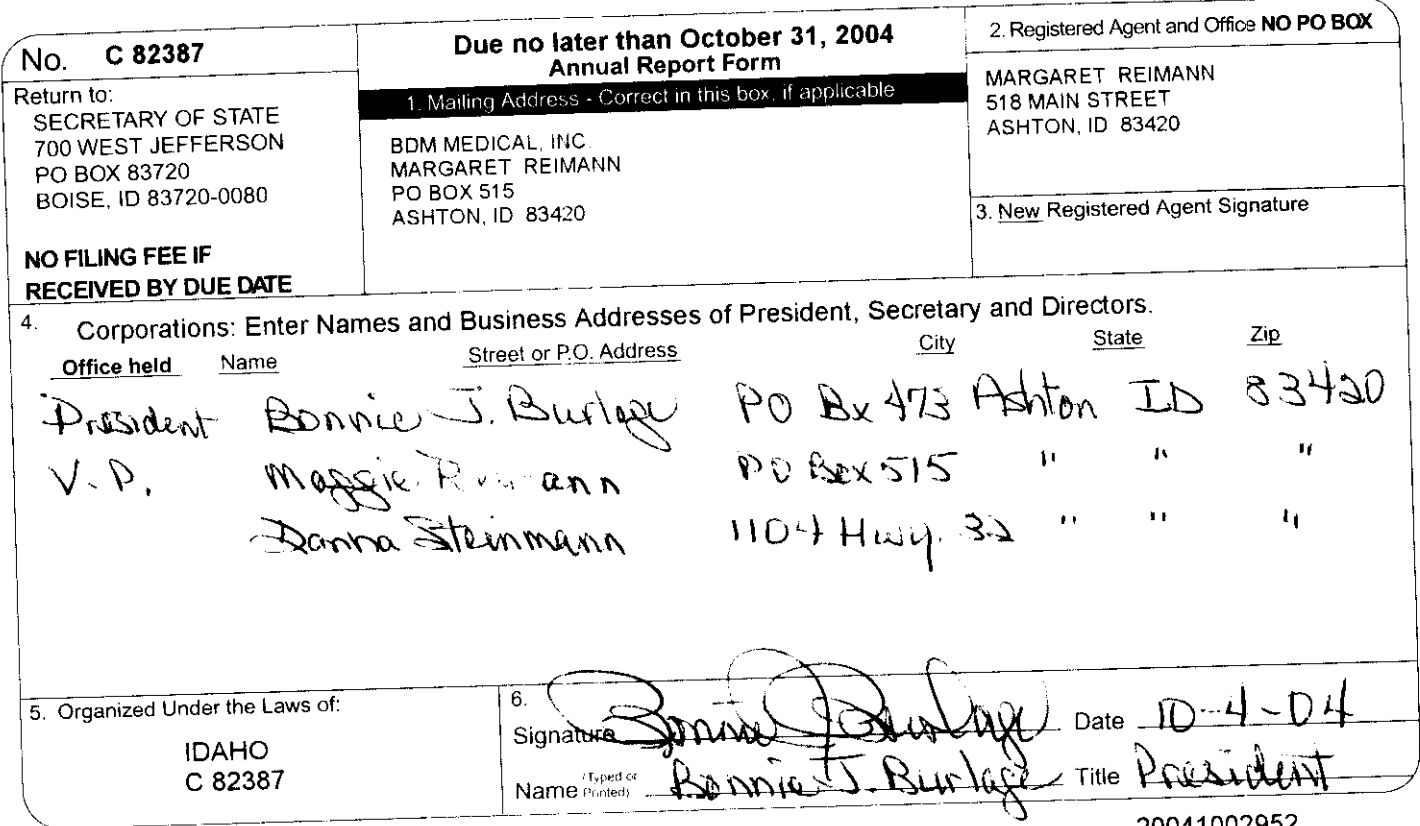 No. C 82387
Return to:
SECRETARY OF STATE
700 WEST JEFFERSON
PO BOX 83720
BOISE, ID 83720-0080
NO FILING FEE IF
RECEIVED BY DUE DATE
Due no later than October 31, 2004
Annual Report Form
1. Mailing Address - Correct in this box, if applicable
BDM MEDICAL, INC.
MARGARET REIMANN
PO BOX 515
ASHTON, ID 83420
2. Registered Agent and Office NO PO BOX
MARGARET REIMANN
518 MAIN STREET
ASHTON, ID 83420
3. New Registered Agent Signature
4. Corporations: Enter Names and Business Addresses of President, Secretary and Directors.
Office held Name Street or P.O. Address City State Zip
President Bonnie J. Burlage PO Bx 473 Ashton ID 83420
V.P. Maggie PO Box 515 " " "
Danna Steinmann 1104 Hwy. 32 " " "
5. Organized Under the Laws of:
IDAHO
C 82387
6.
Signature Bonnie J Burlage Date 10-4-04
Name (Typed or Printed) Bonnie J. Burlage Title President
20041002952